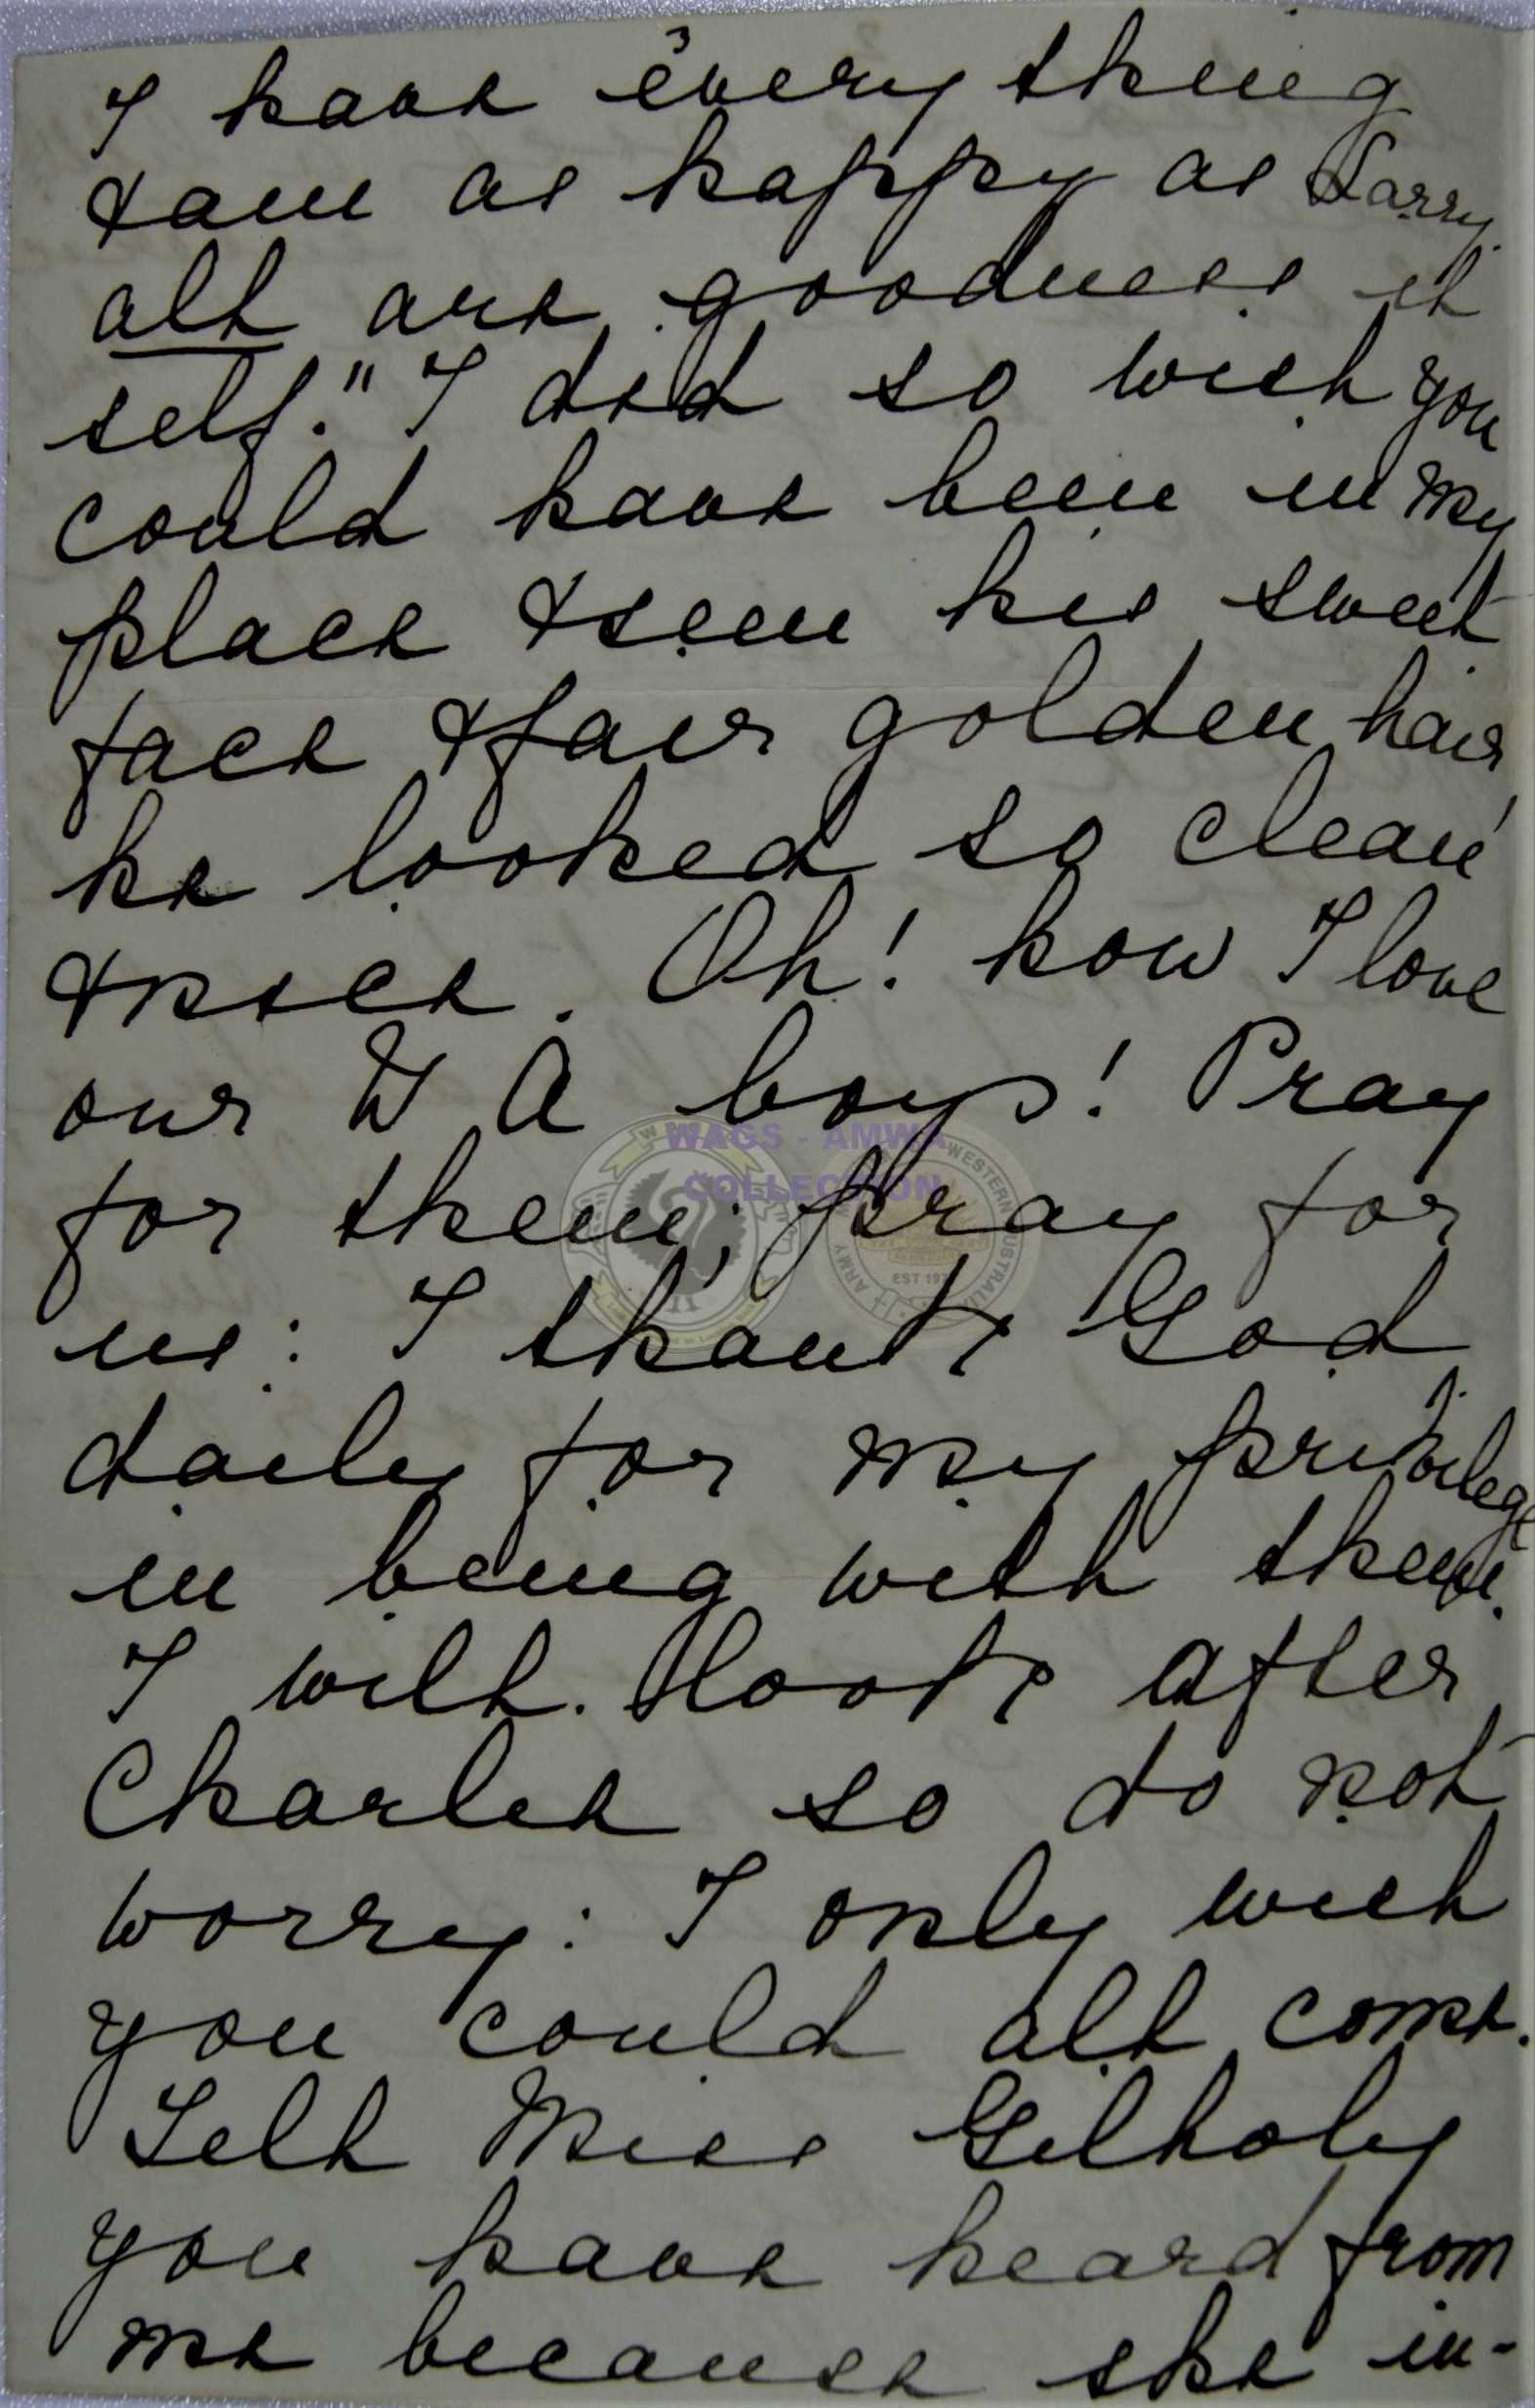 3
I have everything
& am as happy as Larry.
all are goodness it
self." I did so wish you
could have been in my
place & seen his sweet
face & fair golden hair
he looked so clean
& nice. Oh! how I love
our W A boys! Pray
for them; pray for
us: I thank God
daily for my privilege
in being with them.
I will look after
Charlie so do not
worry: I only wish
you could all come.
Tell Miss Gilholy
you have heard from
me because she in-
WAGS - AMWA
COLLECTION
WESTERN AUSTRALIA
ARMY
EST 197